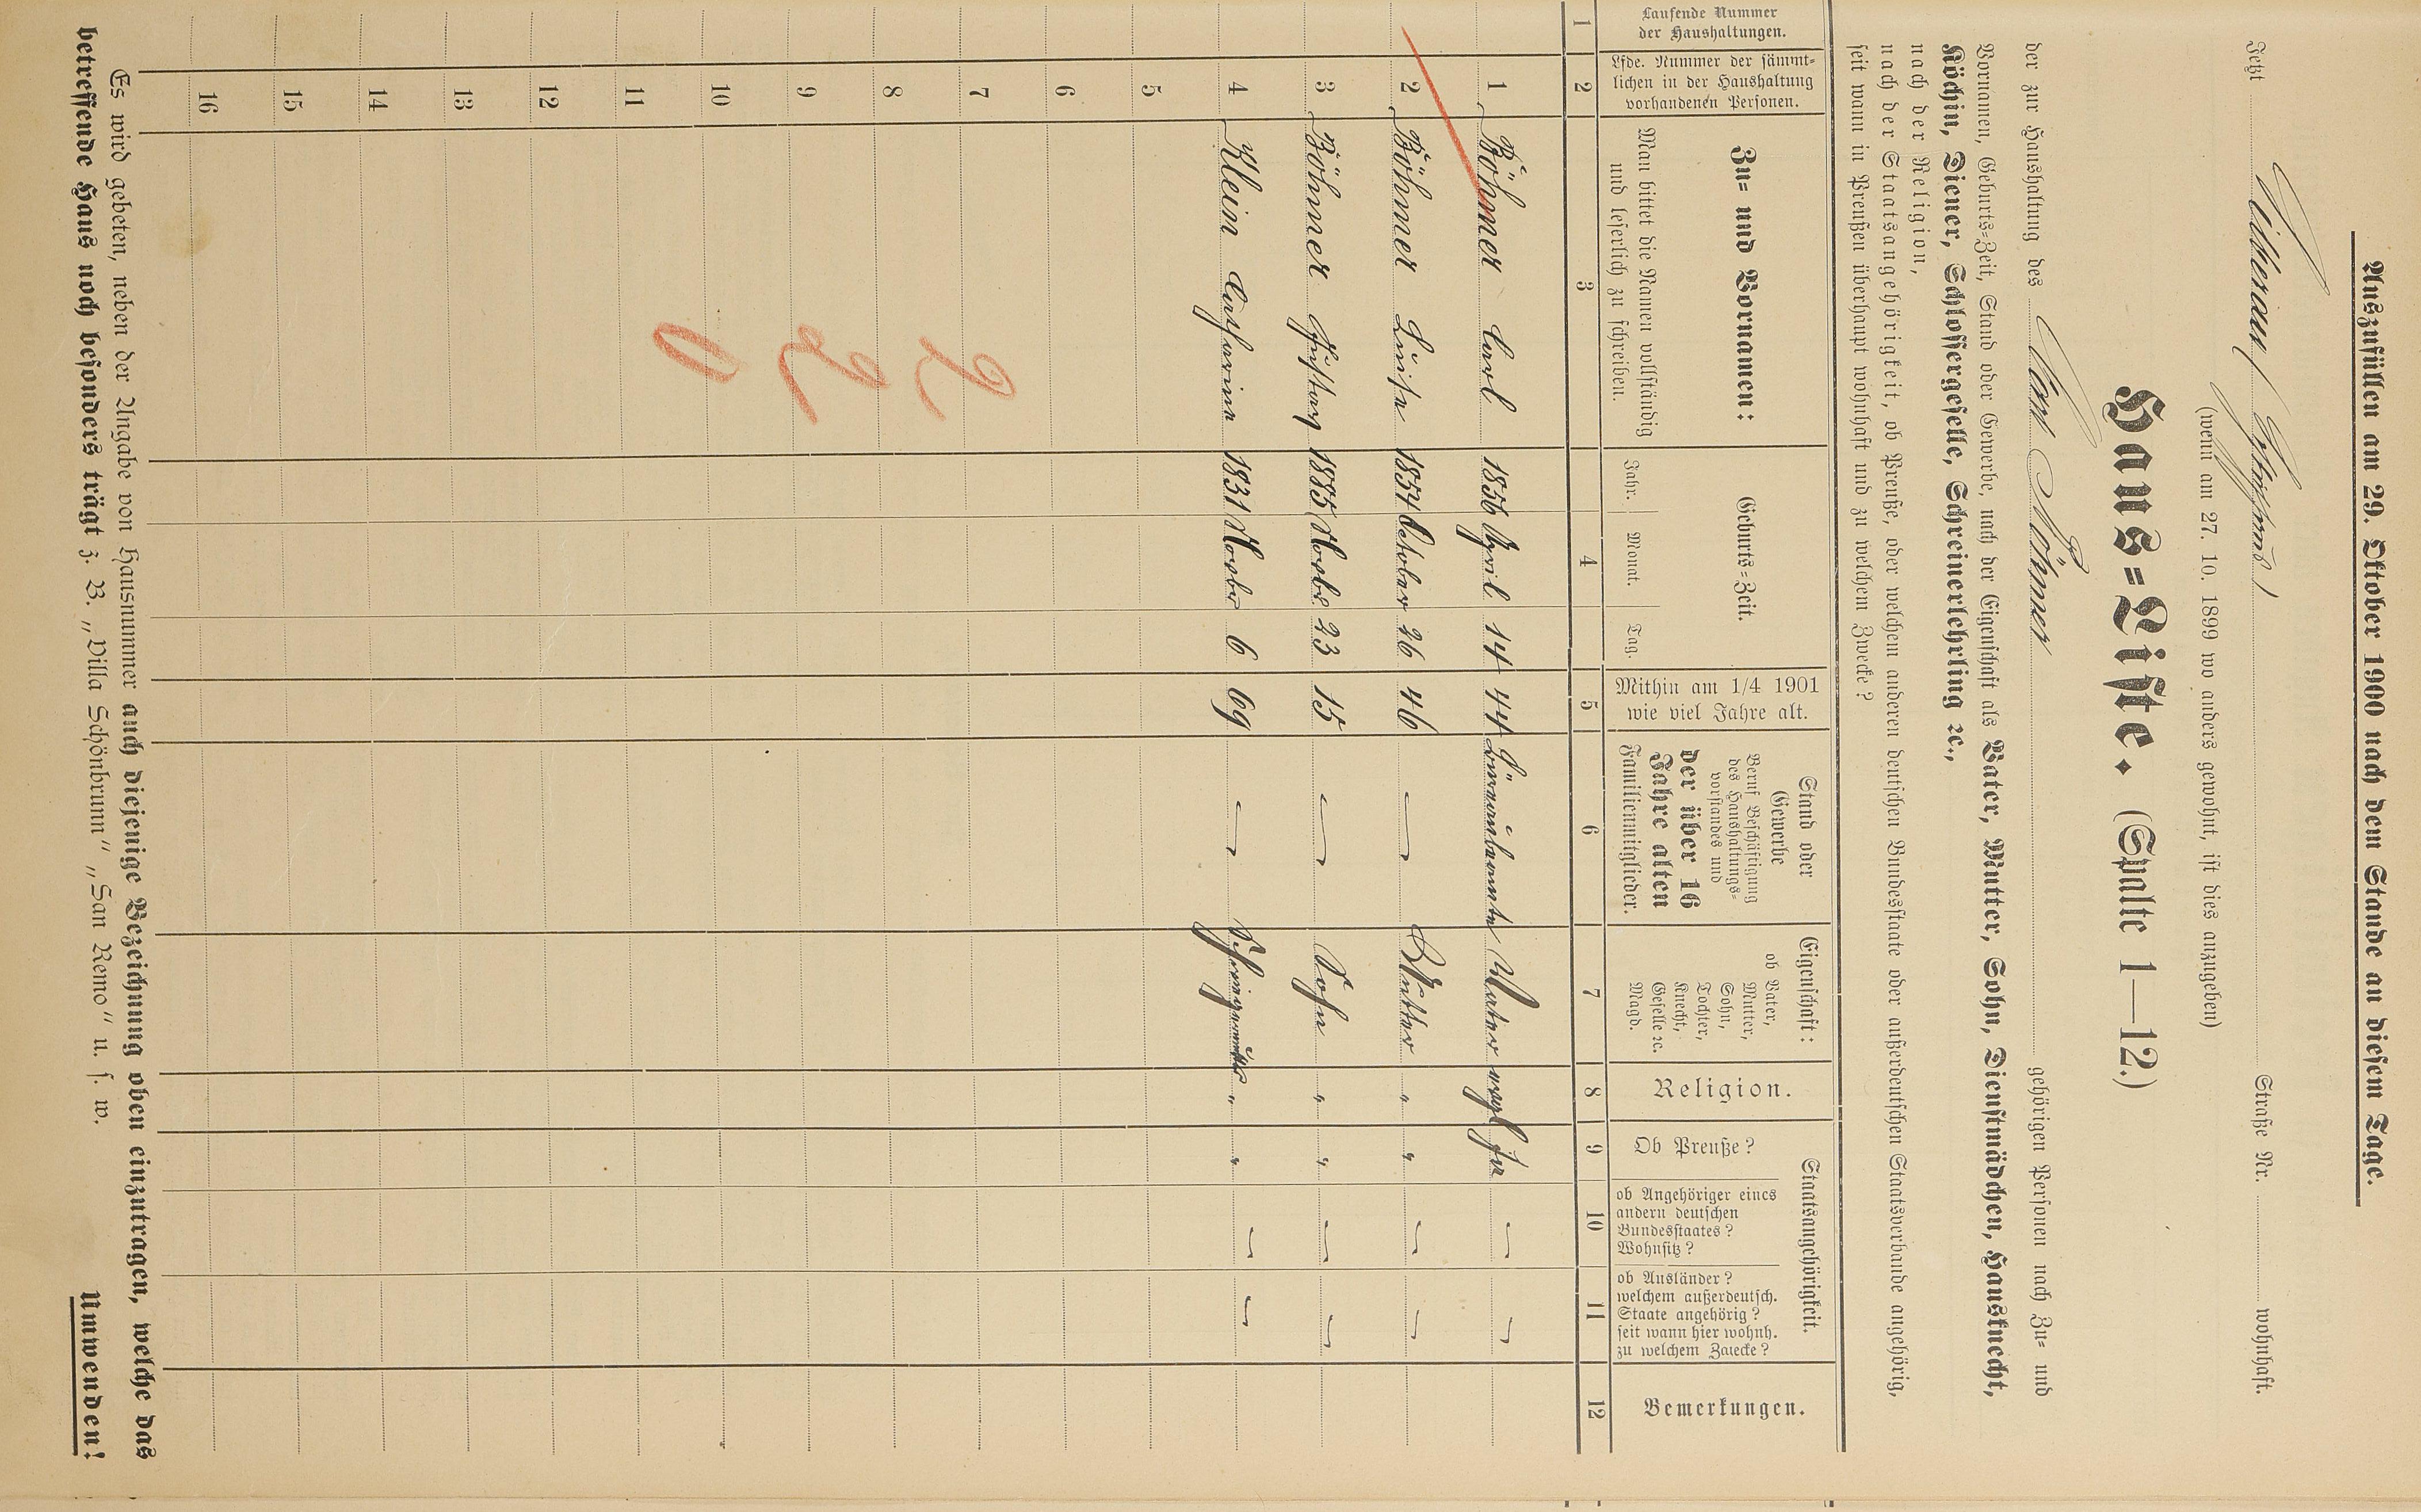 Auszufüllen am 29. Oktober 1900 nach dem Stande an diesem Tage.
Jetzt Biberau Straße Nr. wohnhaft.
(wenn am 27. 10. 1899 wo anders gewohnt, ist dies anzugeben)
Haus=Liste. (Spalte 1—12.)
der zur Haushaltung des gehörigen Personen nach Zu= und
Vornamen, Geburts=Zeit, Stand oder Gewerbe, nach der Eigenschaft als Vater, Mutter, Sohn, Dienstmädchen, Hausknecht,
Köchin, Diener, Schlossergeselle, Schreinerlehrling ꝛc.,
nach der Religion,
nach der Staatsangehörigkeit, ob Preuße, oder welchem anderen deutschen Bundesstaate oder außerdeutschen Staatsverbande angehörig,
seit wann in Preußen überhaupt wohnhaft und zu welchem Zwecke?
Laufende Nummer
der Haushaltungen.
Lfde. Nummer der sämmt=
lichen in der Haushaltung
vorhandenen Personen.
Zu= und Vornamen:
Man bittet die Namen vollständig
und leserlich zu schreiben.
Geburts=Zeit.
Jahr. Monat. Tag.
Mithin am 1/4 1901
wie viel Jahre alt.
Stand oder
Gewerbe
Beruf Beschäftigung
des Haushaltungs=
vorstandes und
der über 16
Jahre alten
Familienmitglieder.
Eigenschaft:
ob Vater,
Mutter,
Sohn,
Tochter,
Knecht,
Geselle ꝛc.
Magd.
Religion.
Staatsangehörigkeit.
Ob Preuße?
ob Angehöriger eines
andern deutschen
Bundesstaates?
Wohnsitz?
ob Ausländer?
welchem außerdeutsch.
Staate angehörig?
seit wann hier wohnh.
zu welchem Zwecke?
Bemerkungen.
1 2 3 4 5 6 7 8 9 10 11 12
1 Böhmer Carl 1856 April 14 44 Vater evgl ja — —
2 Böhmer Luise 1854 October 26 46 — Mutter " " — —
3 Böhmer Gustav 1885 Novbr 23 15 — Sohn " " — —
4 Klein Catharine 1831 Novbr 6 69 — Schwiegermutter " " — —
5
6
7
8
9
10
11
12
13
14
15
16
2
2
0
Es wird gebeten, neben der Angabe von Hausnummer auch diejenige Bezeichnung oben einzutragen, welche das
betreffende Haus noch besonders trägt z. B. „Villa Schönbrunn" „San Remo" u. s. w.
Umwenden!